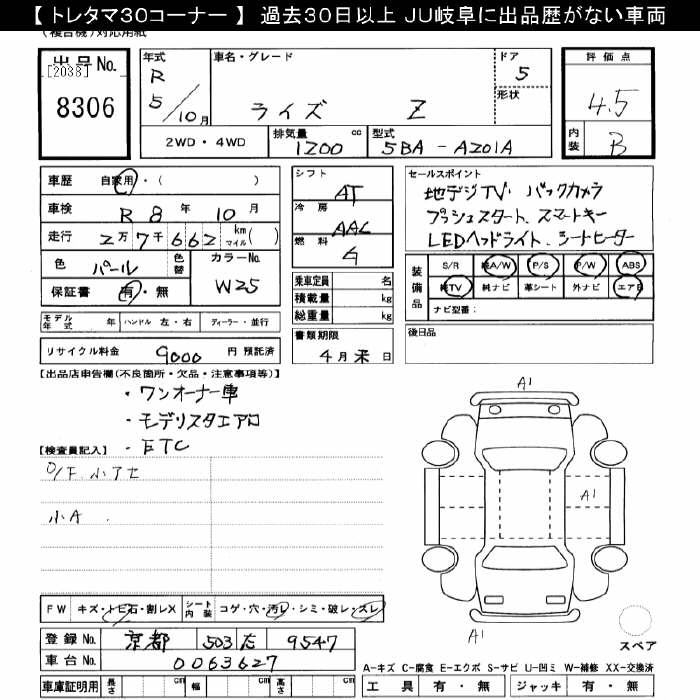 【 トレタマ30コーナー 】 過去30日以上 JU岐阜に出品歴がない車両
(複合機)対応用紙
出品No. [2038] 8306
年式 R 5/10月
車名・グレード ライズ Z
ドア 5
形状
評価点 4.5
内装 B
2WD・4WD
排気量 cc 1200
型式 5BA-A201A
車歴 自家用・( )
車検 R 8年 10月
走行 2万7千662 km マイル( )
色 パール 色替
カラーNo. W25
保証書 有・無
シフト AT
冷房 AAC
燃料 G
乗車定員 名
積載量 kg
総重量 kg
セールスポイント
地デジTV・バックカメラ
プッシュスタート、スマートキー
LEDヘッドライト、シートヒーター
装備品 S/R 純A/W P/S P/W ABS
純TV 純ナビ 革シート 外ナビ エアB
ナビ型番:
モデル年式 年 ハンドル 左・右 ディーラー・並行
書類期限 4月末日
後日品
リサイクル料金 9000 円 預託済
【出品店申告欄(不良箇所・欠品・注意事項等)】
・ワンオーナー車
・モデリスタエアロ
・ETC
【検査員記入】
小A
A1
A1
A1
FW キズ・トビ石・割レX
シート内装 コゲ・穴・汚レ・シミ・破レ・スレ
登録No. 京都 503 9547
車台No. 0063627
スペア
A-キズ C-腐食 E-エクボ S-サビ U-凹ミ W-補修 XX-交換済
車庫証明用 長さ cm 幅 cm 高さ cm
工具 有・無 ジャッキ 有・無